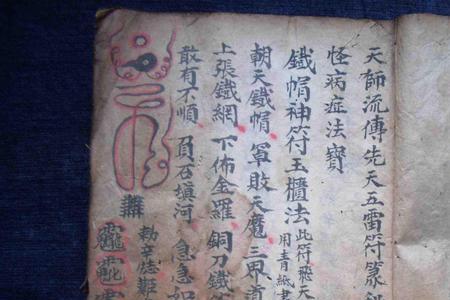 天師流傳先天五雷符篆
怪病症法寶
鐵帽神符王櫃法 此符飛天
用青紙書
朝天鐵帽 罩敗天魔 三界
上張鐵網 下佈金羅 銅刀鐵
敢有不順 頁石填河 急急如